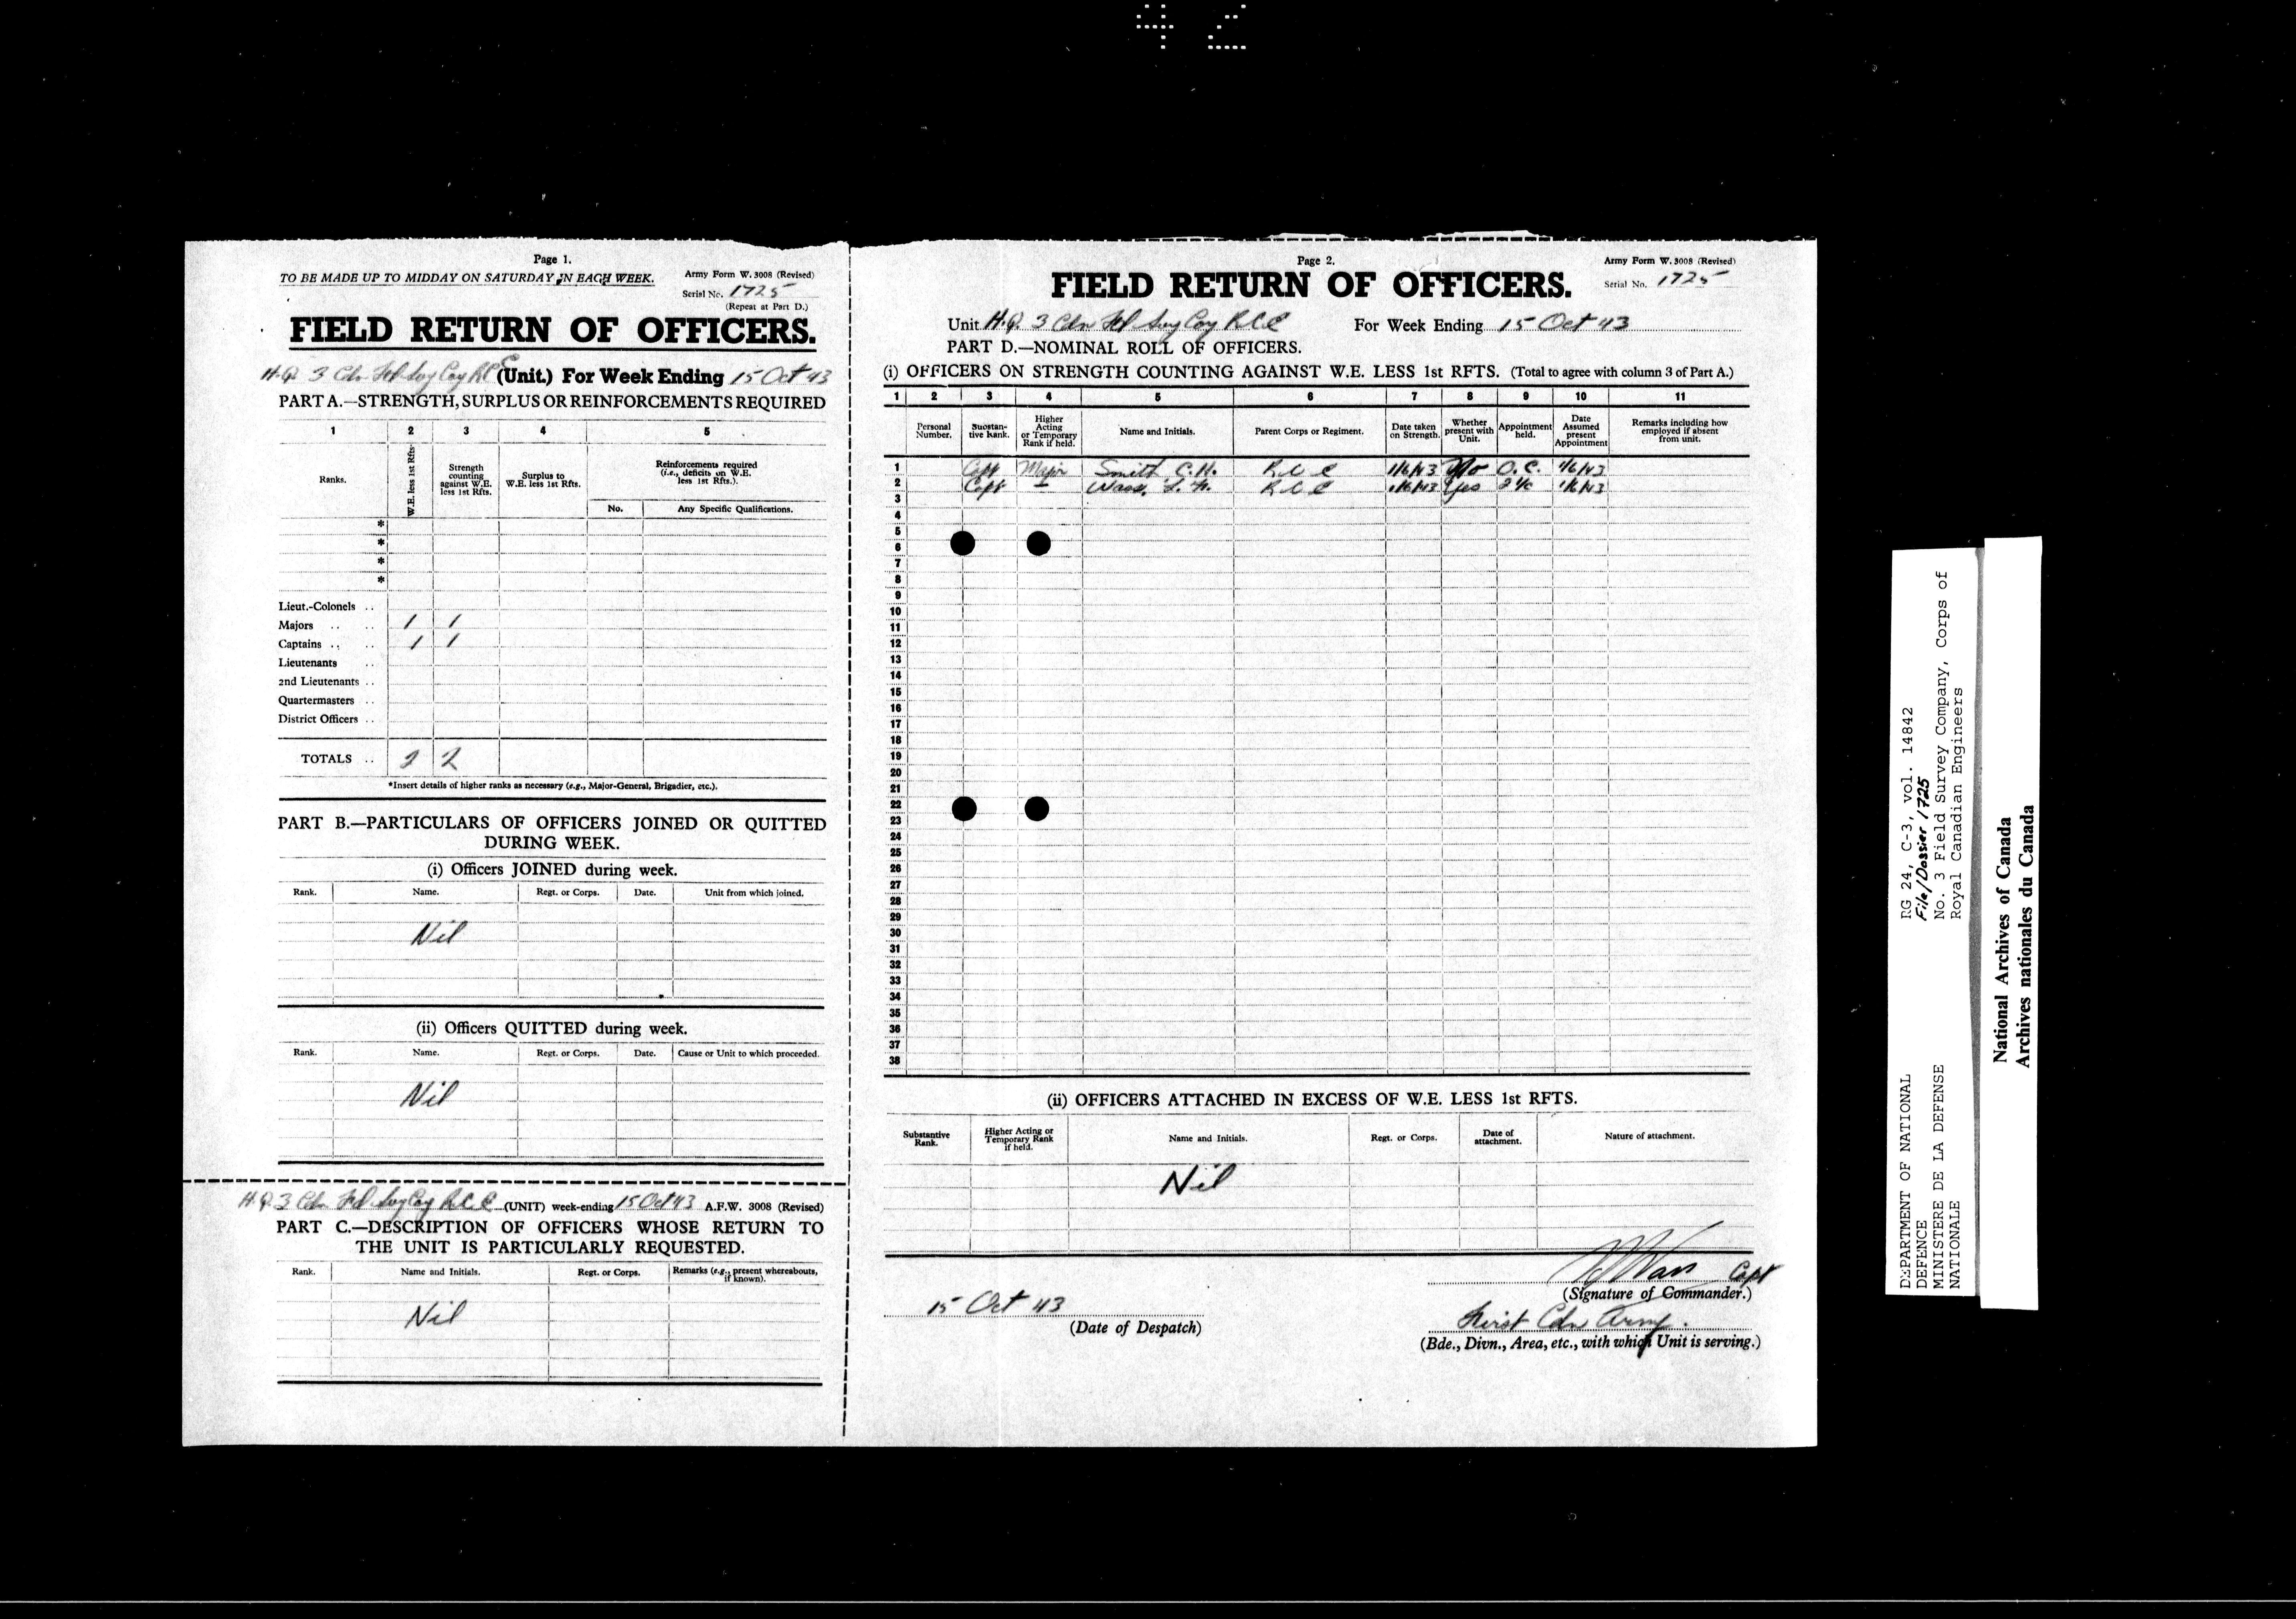 42
Page 1.
TO BE MADE UP TO MIDDAY ON SATURDAY IN EACH WEEK.
Army Form W. 3008 (Revised)
Serial No. 1725
(Repeat at Part D.)
FIELD RETURN OF OFFICERS.
H.Q. 3 Cdn Fd Svy Coy RCE (Unit.) For Week Ending 15 Oct 43
PART A.—STRENGTH, SURPLUS OR REINFORCEMENTS REQUIRED
1 2 3 4 5
Ranks.
W.E. less 1st Rfts.
Strength counting against W.E. less 1st Rfts.
Surplus to W.E. less 1st Rfts.
Reinforcements required (i.e., deficits on W.E. less 1st Rfts.).
No. Any Specific Qualifications.
*
*
*
*
Lieut.-Colonels ..
Majors .. .. 1 1
Captains .. .. 1 1
Lieutenants ..
2nd Lieutenants ..
Quartermasters ..
District Officers ..
TOTALS .. 2 2
*Insert details of higher ranks as necessary (e.g., Major-General, Brigadier, etc.).
PART B.—PARTICULARS OF OFFICERS JOINED OR QUITTED
DURING WEEK.
(i) Officers JOINED during week.
Rank. Name. Regt. or Corps. Date. Unit from which joined.
Nil
(ii) Officers QUITTED during week.
Rank. Name. Regt. or Corps. Date. Cause or Unit to which proceeded.
Nil
H.Q. 3 Cdn Fd Svy Coy RCE (UNIT) week-ending 15 Oct 43 A.F.W. 3008 (Revised)
PART C.—DESCRIPTION OF OFFICERS WHOSE RETURN TO
THE UNIT IS PARTICULARLY REQUESTED.
Rank. Name and Initials. Regt. or Corps. Remarks (e.g., present whereabouts, if known).
Nil
Page 2.
Army Form W. 3008 (Revised)
Serial No. 1725
FIELD RETURN OF OFFICERS.
Unit H.Q. 3 Cdn Fd Svy Coy RCE For Week Ending 15 Oct 43
PART D.—NOMINAL ROLL OF OFFICERS.
(i) OFFICERS ON STRENGTH COUNTING AGAINST W.E. LESS 1st RFTS. (Total to agree with column 3 of Part A.)
1 2 3 4 5 6 7 8 9 10 11
Personal Number.
Substantive Rank.
Higher Acting or Temporary Rank if held.
Name and Initials.
Parent Corps or Regiment.
Date taken on Strength.
Whether present with Unit.
Appointment held.
Date Assumed present Appointment
Remarks including how employed if absent from unit.
1 Capt Major Smith C.H. RCE 1/6/43 No O.C. 1/6/43
2 Capt — Wass, RCE 1/6/43 Yes 2 i/c 1/6/43
3
4
5
6
7
8
9
10
11
12
13
14
15
16
17
18
19
20
21
22
23
24
25
26
27
28
29
30
31
32
33
34
35
36
37
38
(ii) OFFICERS ATTACHED IN EXCESS OF W.E. LESS 1st RFTS.
Substantive Rank.
Higher Acting or Temporary Rank if held.
Name and Initials.
Regt. or Corps.
Date of attachment.
Nature of attachment.
Nil
Wass Capt
(Signature of Commander.)
15 Oct 43
(Date of Despatch)
First Cdn Army.
(Bde., Divn., Area, etc., with which Unit is serving.)
DEPARTMENT OF NATIONAL
DEFENCE
MINISTERE DE LA DEFENSE
NATIONALE
RG 24, C-3, vol. 14842
File/Dossier 1725
No. 3 Field Survey Company, Corps of
Royal Canadian Engineers
National Archives of Canada
Archives nationales du Canada